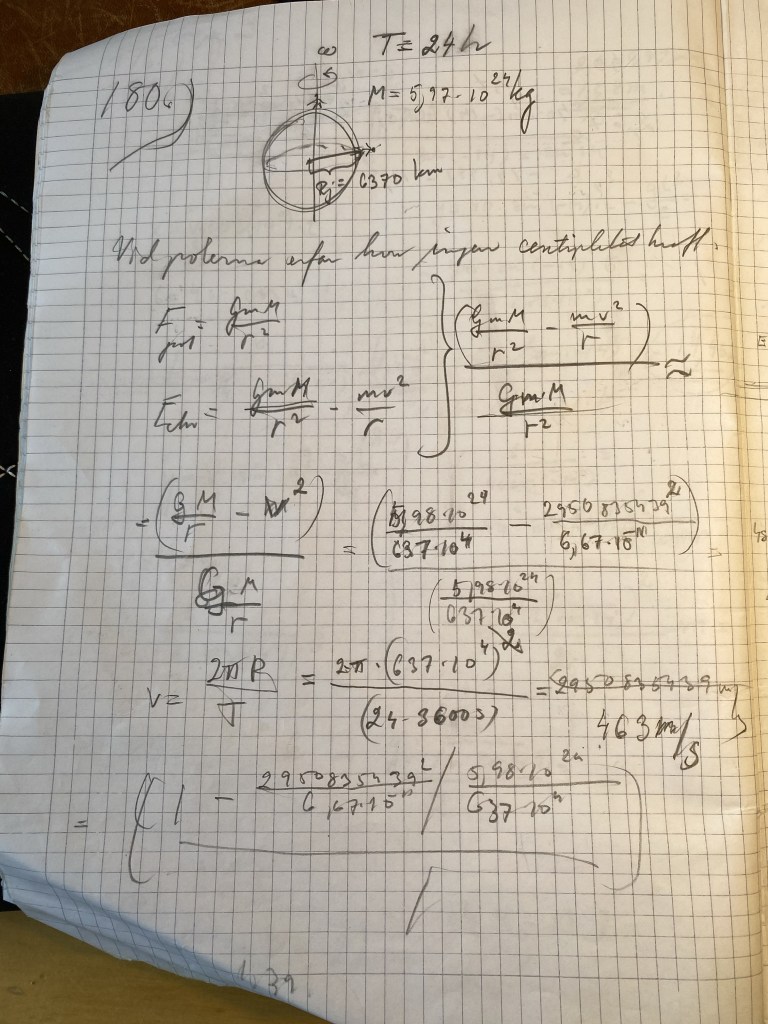 ω T = 24h
180 M = 5,97·10^24 kg
Rj = 6370 km
Vid polerna erfar hon ingen kraft.
F pol = GmM/r^2
(GmM/r^2 - mv^2/r) / (GmM/r^2) ≈
F ekv = GmM/r^2 - mv^2/r
= (GM/r - v^2) / (GM/r) = (5,98·10^24/637·10^4 - 2950835439^2/6,67·10^-11) / (5,98·10^24/637·10^4) =
v = 2πR/T = 2π·(637·10^4)^2/(24·3600s) = (2950835439 m/s)
463 m/s
= (1 - 2950835439^2/6,67·10^-11 / 5,98·10^24/637·10^4)